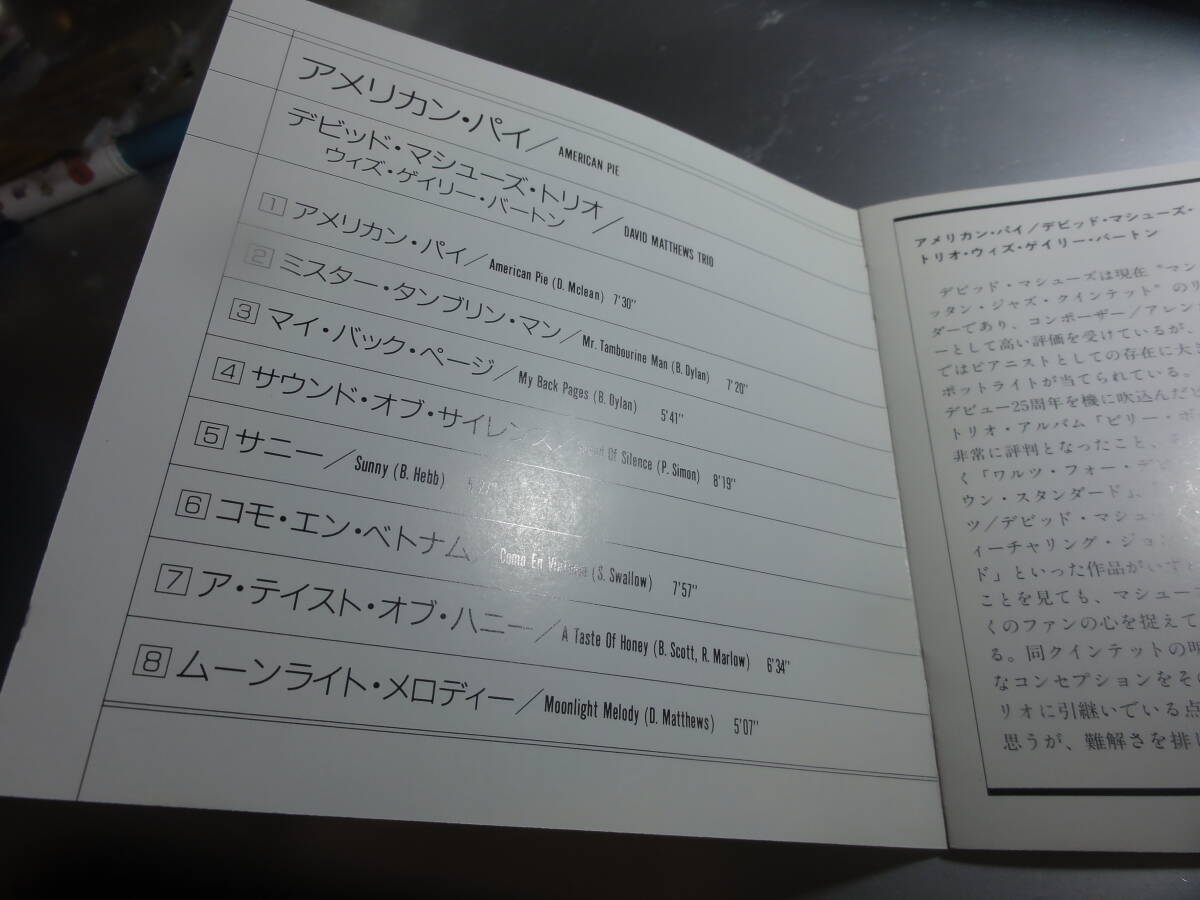 アメリカン・パイ／AMERICAN PIE
デビッド・マシューズ・トリオ／DAVID MATTHEWS TRIO
ウィズ・ゲイリー・バートン
1 アメリカン・パイ／American Pie (D. Mclean) 7'30"
2 ミスター・タンブリン・マン／Mr. Tambourine Man (B. Dylan) 7'20"
3 マイ・バック・ページ／My Back Pages (B. Dylan) 5'41"
4 サウンド・オブ・サイレンス Of Silence (P. Simon) 8'19"
5 サニー／Sunny (B. Hebb)
6 コモ・エン・ベトナム／Como En (S. Swallow) 7'57"
7 ア・テイスト・オブ・ハニー／A Taste Of Honey (B. Scott, R. Marlow) 6'34"
8 ムーンライト・メロディー／Moonlight Melody (D. Matthews) 5'07"
アメリカン・パイ／デビッド・マシューズ・
トリオ・ウィズ・ゲイリー・バートン
デビッド・マシューズは現在“マン
ッタン・ジャズ・クインテット”のリ
ダーであり、コンポーザー／アレン
ーとして高い評価を受けているが、
ではピアニストとしての存在に大き
ポットライトが当てられている。
デビュー25周年を機に吹込んだ
トリオ・アルバム「ビリー・ボ
非常に評判となったこと、そ
く「ワルツ・フォー・デビ
ウン・スタンダード」、
ツ／デビッド・マシュ
ィーチャリング・ジョン
ド」といった作品がいずれ
ことを見ても、マシュー
くのファンの心を捉えて
る。同クインテットの明
なコンセプションをその
リオに引継いでいる点
思うが、難解さを排し